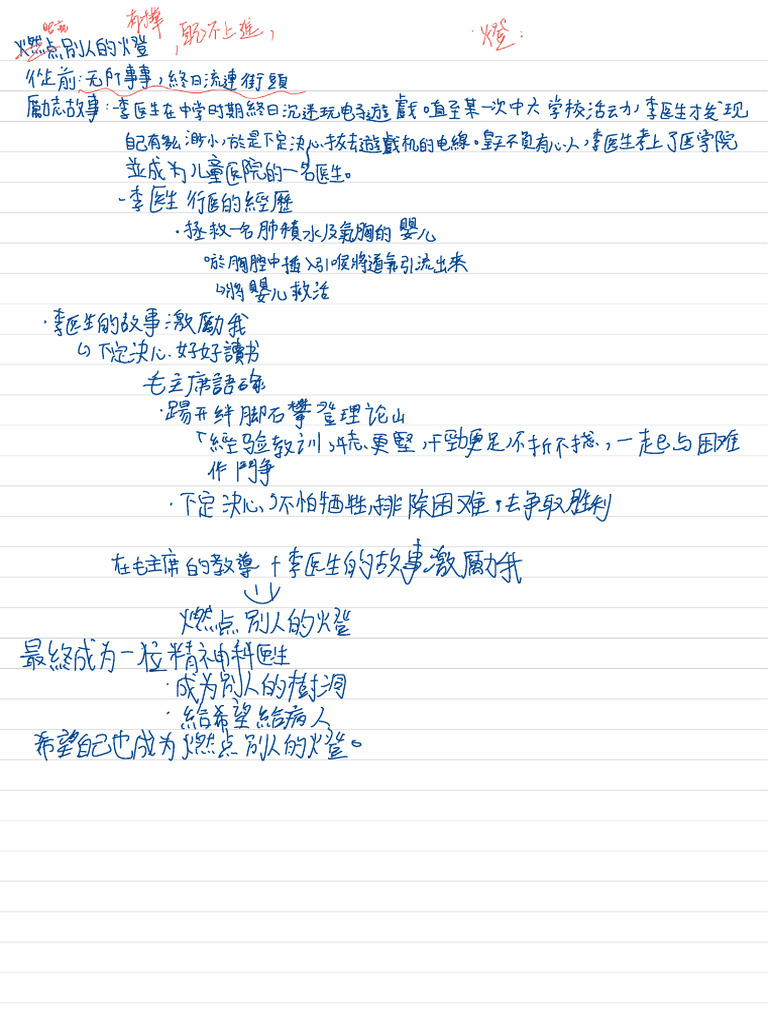 燃点別人的燈
，躭不上進，
燈：
從前：无所事事，終日流連街頭
勵志故事：李医生在中学时期終日沉迷玩电子遊戲。直至某一次中六学校活动，李医生才发现
自己有多渺小，於是下定決心，拔去遊戲机的电線。皇天不負有心人，李医生考上了医学院
並成为儿童医院的一名医生。
- 李医生行医的經歷
· 拯救一名肺積水及氣胸的嬰儿
於胸腔中插入引喉將道氣引流出來
↳將嬰儿救活
· 李医生的故事激勵我
↳下定決心，好好讀书
毛主席語碌
· 踢开絆脚石攀登理论山
「經验教训，斗志更堅，干勁更足，不折不撓，一起与困难
作鬥争
· 下定決心，不怕牺牲，排除困难，去争取胜利
在毛主席的教導 + 李医生的故事激勵我
燃点別人的燈
最終成为一位精神科医生
· 成为別人的樹洞
· 給希望給病人
希望自己也成为燃点別人的燈。